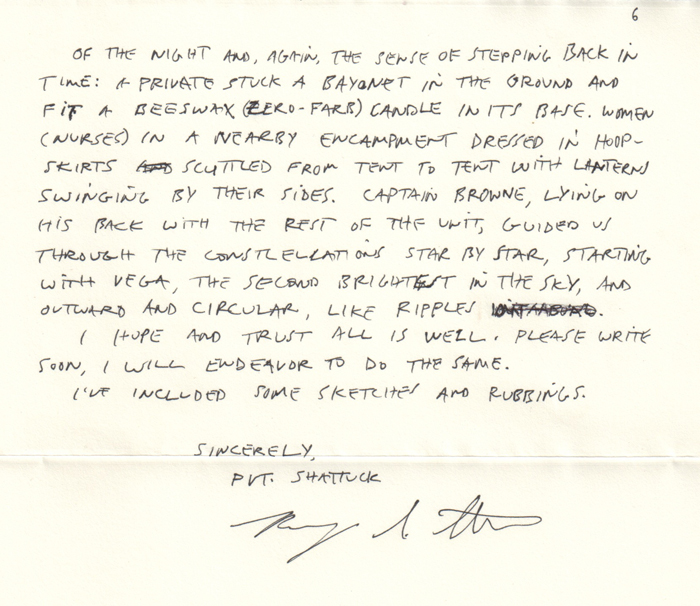 6
OF THE NIGHT AND, AGAIN, THE SENSE OF STEPPING BACK IN
TIME: A PRIVATE STUCK A BAYONET IN THE GROUND AND
FIT A BEESWAX (ZERO-FARB) CANDLE IN ITS BASE. WOMEN
(NURSES) IN A NEARBY ENCAMPMENT DRESSED IN HOOP-
SKIRTS SCUTTLED FROM TENT TO TENT WITH LANTERNS
SWINGING BY THEIR SIDES. CAPTAIN BROWNE, LYING ON
HIS BACK WITH THE REST OF THE UNIT, GUIDED US
THROUGH THE CONSTLELLATIONS STAR BY STAR, STARTING
WITH VEGA, THE SECOND BRIGHTEST IN THE SKY, AND
OUTWARD AND CIRCULAR, LIKE RIPPLES.
I HOPE AND TRUST ALL IS WELL. PLEASE WRITE
SOON, I WILL ENDEAVOR TO DO THE SAME.
I'VE INCLUDED SOME SKETCHES AND RUBBINGS.
SINCERELY,
PVT. SHATTUCK